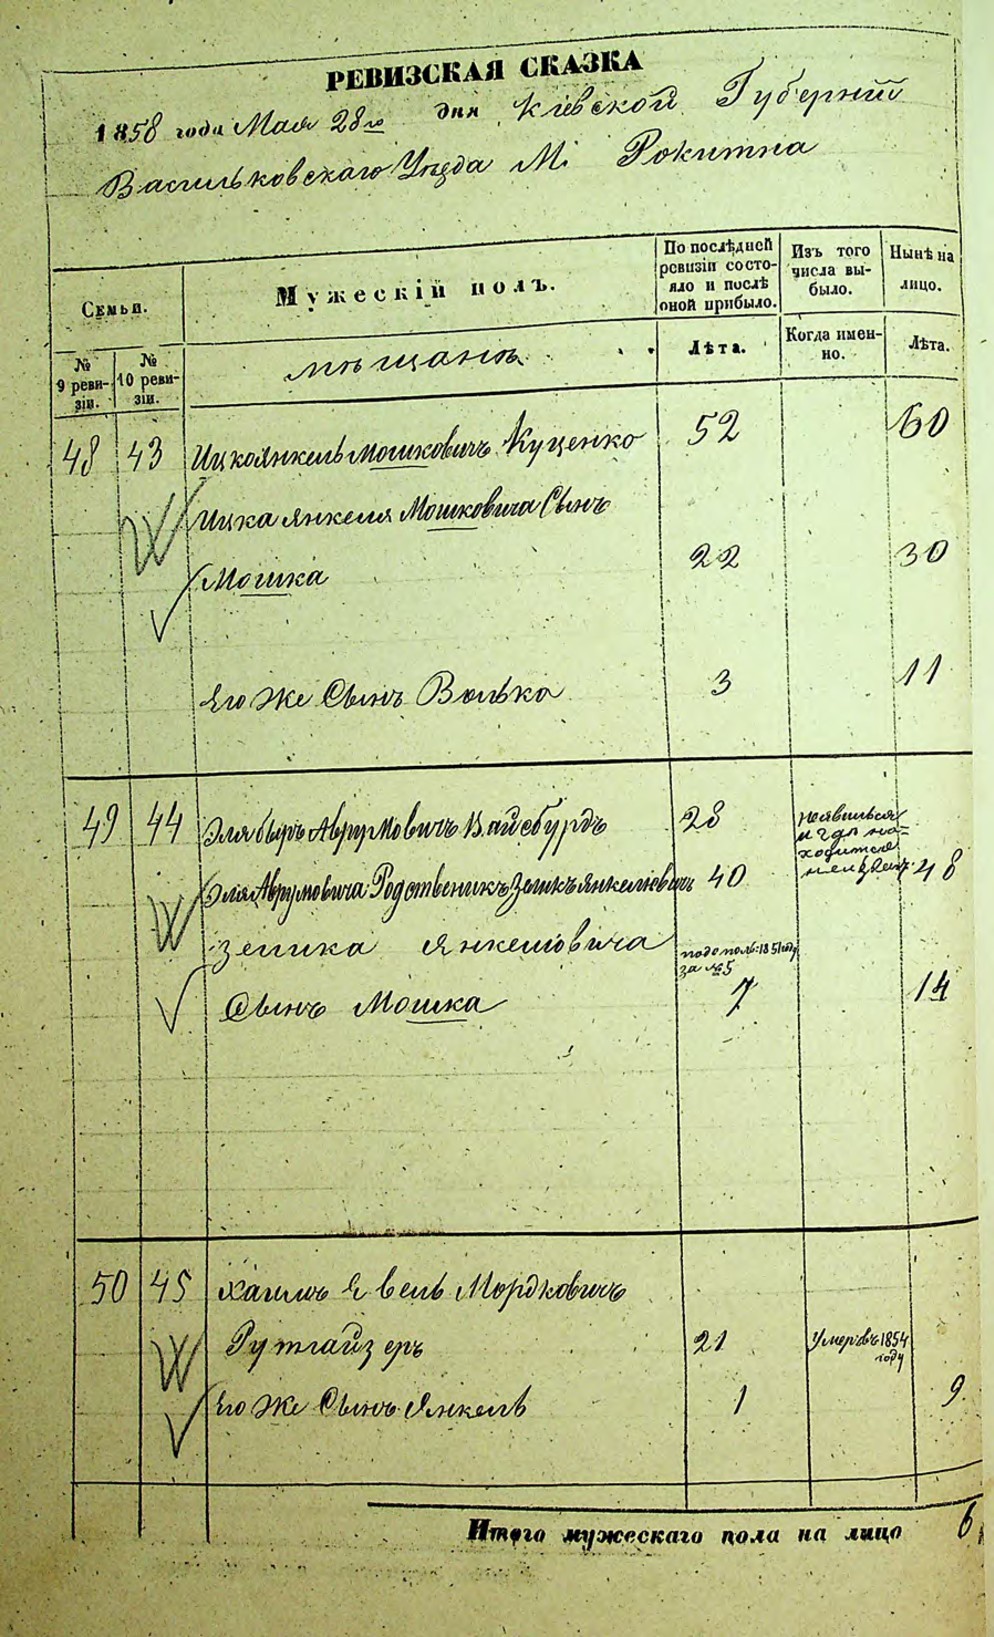 РЕВИЗСКАЯ СКАЗКА
1858 года Мая 28го дня Кіевской Губерніи
Васильковскаго Уезда М: Рокитна
Семьи.
Мужескій полъ.
По послѣдней ревизіи состояло и послѣ оной прибыло.
Изъ того числа выбыло.
Нынѣ на лицо.
№ 9 ревизіи.
№ 10 ревизіи.
мѣщанѣ
Лѣта.
Когда именно.
Лѣта.
48 43 Ицкоянкель Мошковичъ Куценко 52 60
Ицка Янкеля Мошковича Сынъ
Мошка 22 30
Его Же Сынъ Волько 3 11
49 44 Эля Авруmовичъ Вайсбурдъ 28 неявился
и гдѣ на-
ходится
Эля Аврумовича Родственикъ Зеликъ Янкелевичъ 40 48
Зелика Янкелевича
за №5
Сынъ Мошка 7 14
50 45 Хаимъ Мордковичъ
Рутгайзеръ 21 Умеръ въ 1854
году
Его Же Сынъ Янкель 1 9
Итого мужескаго пола на лицо 6